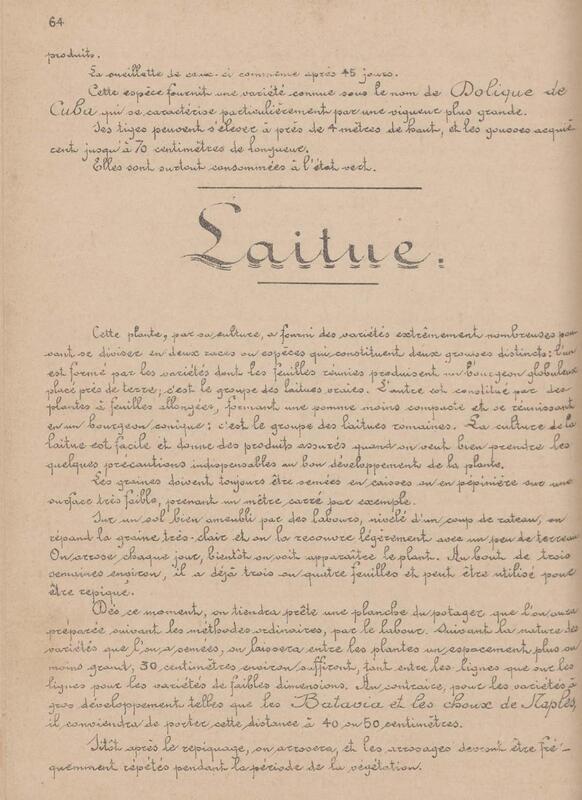 64
produits.
La cueillette de ceux-ci commence après 45 jours.
Cette espèce fournit une variété connue sous le nom de Dolique de
Cuba qui se caractérise particulièrement par une vigueur plus grande.
Ses tiges peuvent s'élever à près de 4 mètres de haut, et les gousses acquiè-
rent jusqu'à 70 centimètres de longueur.
Elles sont surtout consommées à l'état vert.
Laitue.
Cette plante, par sa culture, a fourni des variétés extrêmement nombreuses pou-
vant se diviser en deux races ou espèces qui constituent deux groupes distincts: l'un
est formé par les variétés dont les feuilles réunies produisent un bourgeon globuleux
placé près de terre; c'est le groupe des laitues vraies. L'autre est constitué par des
plantes à feuilles allongées, formant une pomme moins compacte et se réunissant
en un bourgeon conique; c'est le groupe des laitues romaines. La culture de la
laitue est facile et donne des produits assurés quand on veut bien prendre les
quelques precautions indispensables au bon développement de la plante.
Les graines doivent toujours être semées en caisses ou en pépinière sur une
surface très faible, prenant un mètre carré par exemple.
Sur un sol bien ameubli par des labours, nivelé d'un coup de rateau, on
répand la graine très-clair et on la recouvre légèrement avec un peu de terreau
On arrose chaque jour, bientôt on voit apparaître le plant. Au bout de trois
semaines environ, il a déjà trois ou quatre feuilles et peut être utilisé pour
être repiqué.
Dès ce moment, on tiendra prête une planche du potager que l'on aura
préparée suivant les méthodes ordinaires, par le labour. Suivant la nature des
variétés que l'on a semées, on laissera entre les plantes un espacement plus ou
moins grand; 30 centimètres environ suffiront, tant entre les lignes que sur les
lignes pour les variétés de faibles dimensions. Au contraire, pour les variétés à
gros développement telles que les Batavia et les choux de Naples,
il conviendra de porter cette distance à 40 ou 50 centimètres.
Sitôt après le repiquage, on arrosera, et les arrosages devront être fré-
quemment répétés pendant la période de la végétation.